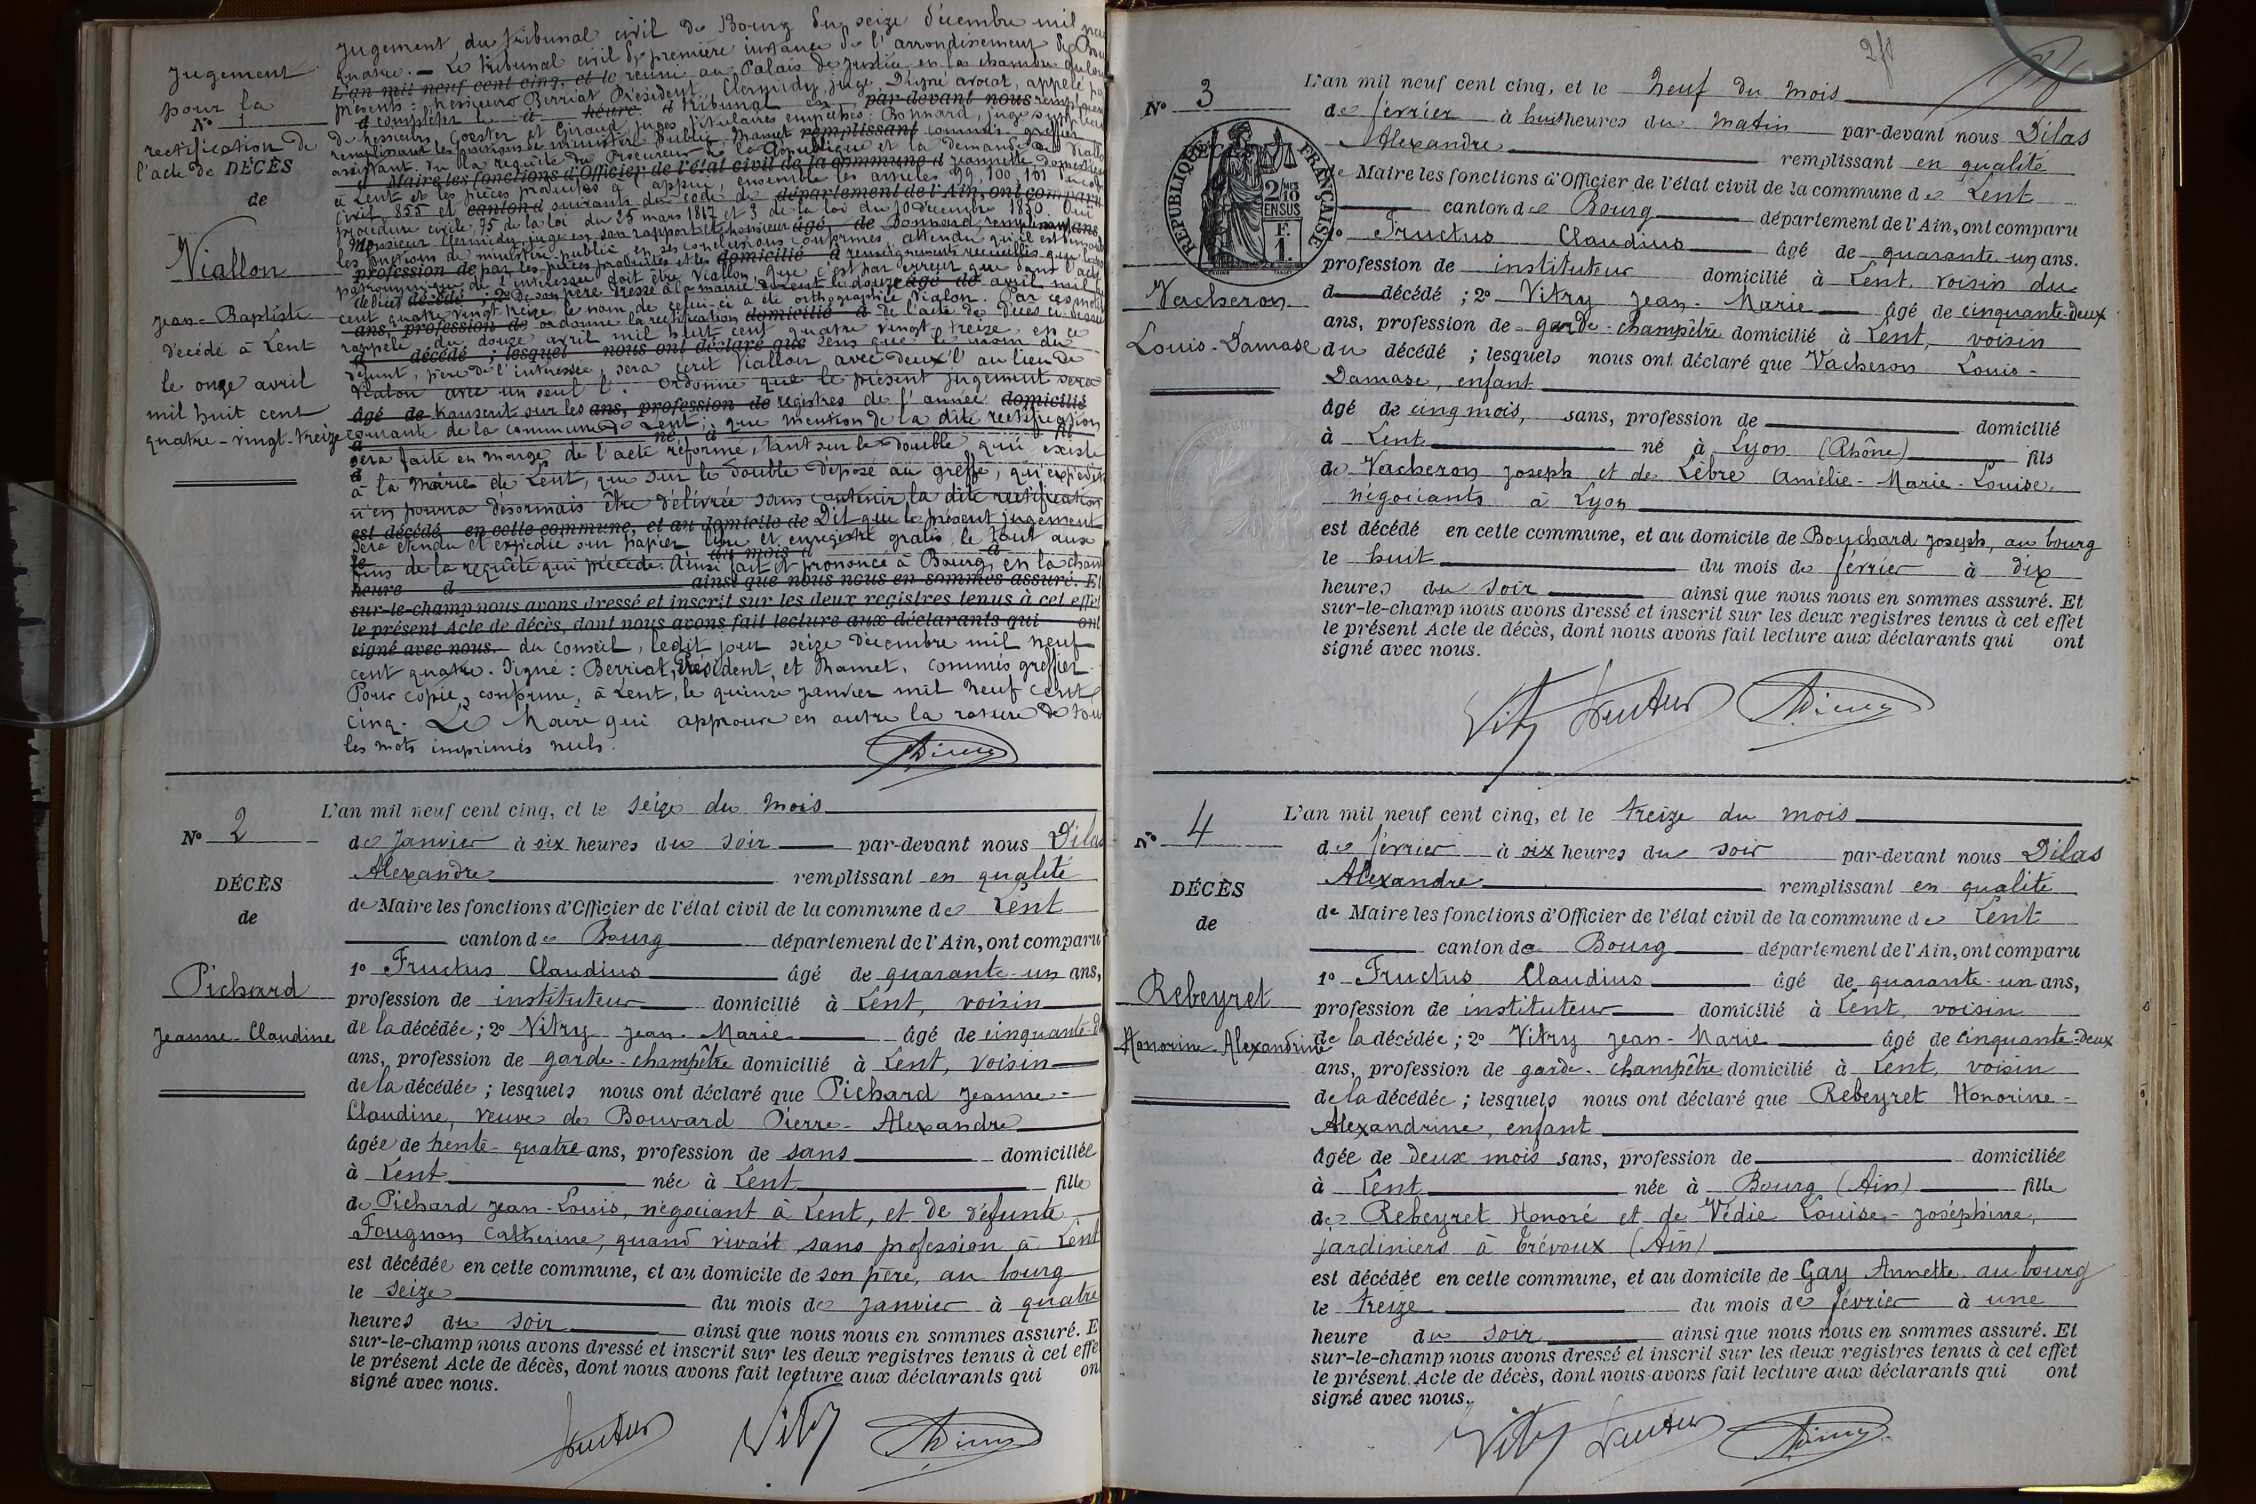 Jugement
pour la
N° 1
rectification de
l'acte de DÉCÈS
de
Viallon
Jean-Baptiste
décédé à Lent
le onze avril
mil huit cent
quatre-vingt-treize
Jugement du tribunal civil de Bourg du seize décembre mil
quatre. — Le tribunal civil de première instance de l'arrondissement de
L'an mil neuf cent cinq, et le réuni au Palais de Justice en la chambre
présents : Messieurs Berriat Président, juge, avocat, appelé
à compléter le à heure d tribunal en par-devant nous
de Messieurs Goester et Giraud juges titulaires empêchés, Bonnard, juge suppléant
remplissant les fonctions de ministère public, Mamet remplissant commis-greffier
assistant. Vu la requête du Procureur de la République et la demande
d Maire les fonctions d'Officier de l'état civil de la commune d Jeannette, domestique
à Lent et les pièces produites à l'appui, ensemble les articles 99, 100, 101
civil 855 et canton d suivants du code de département de l'Ain, ont comparu
procédure civile, 75 de la loi du 25 mars 1817 et 3 de la loi du 10 décembre 1850. Oui
Monsieur juge en son rapport et Monsieur âgé de Bonnard, remplissant ans,
les fonctions de ministère public en ses conclusions conformes, attendu qu'il est
profession de par les pièces produites et les domicilié à renseignements recueillis que
patronymique de l'intéressée doit être Viallon, que c'est par erreur que dans l'acte
de décès décédé ; 2° de son père dressé à la mairie de Lent le douze âgé de avril mil
cent quatre vingt-treize le nom de celui-ci a été orthographié Vialon. Par ces motifs
ans, profession de ordonne la rectification domicilié à de l'acte de décès ci-dessus
rappelé du douze avril mil huit cent quatre vingt-treize, en ce
d décédé ; lesquel nous ont déclaré que sens que le nom du
défunt, père de l'intéressée, sera écrit Viallon avec deux "l" au lieu de
Vialon avec un seul l. Ordonne que le présent jugement sera
âgé de transcrit sur les ans, profession de registres de l'année domicilié
courante de la commune de Lent ; que mention de la dite rectification
à né à fil
sera faite en marge de l'acte réformé, tant sur le double qui existe
d
à la Mairie de Lent, que sur le double déposé au greffe, qu'expédition
n'en pourra désormais être délivrée sans contenir la dite rectification
est décédé en cette commune, et au domicile de Dit que le présent jugement
sera étendu et expédié sur papier libre et enregistré gratis, le tout aux
le du mois d à
fins de la requête qui précède. Ainsi fait et prononcé à Bourg, en la
heure d ainsi que nous nous en sommes assuré. Et
sur-le-champ nous avons dressé et inscrit sur les deux registres tenus à cet effet
le présent Acte de décès, dont nous avons fait lecture aux déclarants qui ont
signé avec nous. du conseil, ledit jour seize décembre mil neuf
cent quatre. Signé : Berriat, Président, et Mamet, commis greffier.
Pour copie, conforme, à Lent, le quinze janvier mil neuf cent
cinq. Le Maire qui approuve en outre la rature de tous
les mots imprimés nuls.
N° 2
DÉCÈS
de
Pichard
Jeanne-Claudine
L'an mil neuf cent cinq, et le seize du mois
de Janvier à six heures du soir par-devant nous Dilas
Alexandre remplissant en qualité
de Maire les fonctions d'Officier de l'état civil de la commune de Lent
canton de Bourg département de l'Ain, ont comparu
1° Fructus Claudius âgé de quarante-un ans,
profession de instituteur domicilié à Lent, voisin
de la décédée ; 2° Vitry Jean-Marie âgé de cinquante-d
ans, profession de garde-champêtre domicilié à Lent, voisin
de la décédée ; lesquels nous ont déclaré que Pichard Jeanne-
Claudine, veuve de Bouvard Pierre-Alexandre
âgée de trente-quatre ans, profession de sans domiciliée
à Lent née à Lent fille
de Pichard Jean-Louis, négociant à Lent, et de défunte
Fougnon Catherine, quand vivait sans profession à Lent
est décédée en cette commune, et au domicile de son père, au bourg
le seize du mois de Janvier à quatre
heures du soir ainsi que nous nous en sommes assuré. E
sur-le-champ nous avons dressé et inscrit sur les deux registres tenus à cet effe
le présent Acte de décès, dont nous avons fait lecture aux déclarants qui on
signé avec nous.
Fructus Vitry Dilas
2f
N° 3
RÉPUBLIQUE FRANÇAISE
2/10 MES
EN SUS
F.
1.
Vacheron
Louis-Damase
L'an mil neuf cent cinq, et le neuf du mois
de février à huit heures du matin par-devant nous Dilas
Alexandre remplissant en qualité
de Maire les fonctions d'Officier de l'état civil de la commune de Lent
canton de Bourg département de l'Ain, ont comparu
1° Fructus Claudius âgé de quarante-un ans.
profession de instituteur domicilié à Lent, voisin du
d décédé ; 2° Vitry Jean-Marie âgé de cinquante-deux
ans, profession de garde-champêtre domicilié à Lent, voisin
du décédé ; lesquels nous ont déclaré que Vacheron Louis-
Damase, enfant
âgé de cinq mois, sans, profession de domicilié
à Lent né à Lyon (Rhône) fils
de Vacheron Joseph et de Lèbre Amélie-Marie-Louise,
négociants à Lyon
est décédé en cette commune, et au domicile de Bouchard Joseph, au bourg
le huit du mois de février à dix
heures du soir ainsi que nous nous en sommes assuré. Et
sur-le-champ nous avons dressé et inscrit sur les deux registres tenus à cet effet
le présent Acte de décès, dont nous avons fait lecture aux déclarants qui ont
signé avec nous.
Vitry Fructus Dilas
N° 4
DÉCÈS
de
Rebeyret
Honorine-Alexandrine
L'an mil neuf cent cinq, et le treize du mois
de février à six heures du soir par-devant nous Dilas
Alexandre remplissant en qualité
de Maire les fonctions d'Officier de l'état civil de la commune de Lent
canton de Bourg département de l'Ain, ont comparu
1° Fructus Claudius âgé de quarante-un ans,
profession de instituteur domicilié à Lent, voisin
de la décédée ; 2° Vitry Jean-Marie âgé de cinquante-deux
ans, profession de garde-champêtre domicilié à Lent, voisin
de la décédée ; lesquels nous ont déclaré que Rebeyret Honorine-
Alexandrine, enfant
âgée de deux mois sans, profession de domiciliée
à Lent née à Bourg (Ain) fille
de Rebeyret Honoré et de Védie Louise-Joséphine,
jardiniers à Trévoux (Ain)
est décédée en cette commune, et au domicile de Gay Annette au bourg
le treize du mois de février à une
heure du soir ainsi que nous nous en sommes assuré. Et
sur-le-champ nous avons dressé et inscrit sur les deux registres tenus à cet effet
le présent Acte de décès, dont nous avons fait lecture aux déclarants qui ont
signé avec nous.
Vitry Fructus Dilas